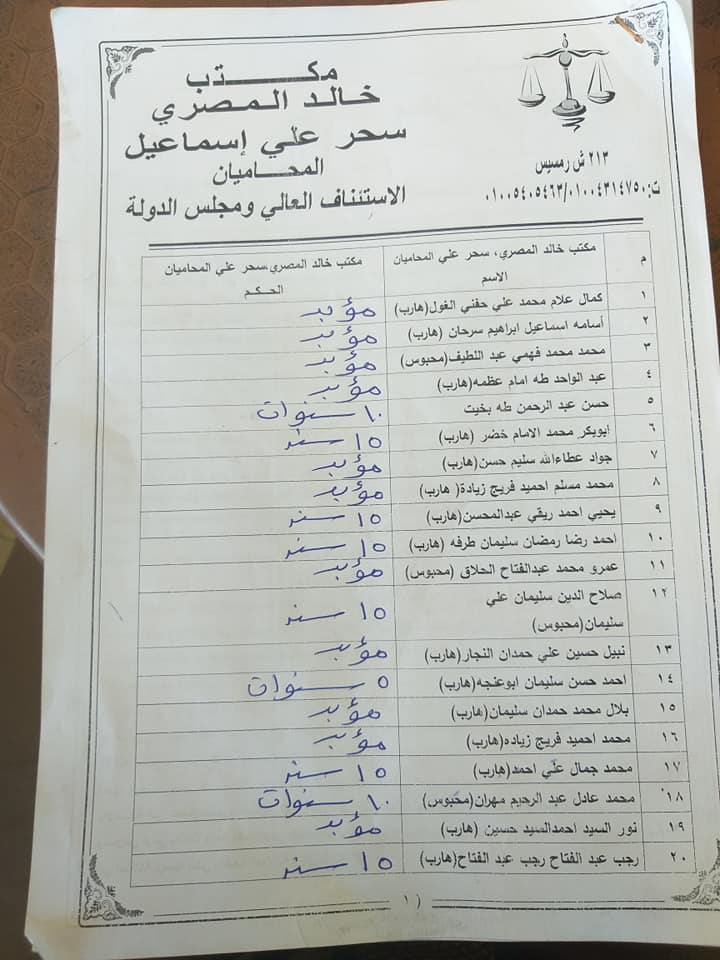 مكتب
خالد المصري
سحر علي إسماعيل
المحاميان
الاستئناف العالي ومجلس الدولة
٢١٣ ش رمسيس
ت: ٠١٠٠٥٤٠٥٤٦٣/٠١٠٠٤٣١٤٧٥٠
م مكتب خالد المصري، سحر علي المحاميان مكتب خالد المصري،سحر علي المحاميان
الاسم الحكم
١ كمال علام محمد علي حفني الغول(هارب) مؤبد
٢ أسامه اسماعيل ابراهيم سرحان (هارب) مؤبد
٣ محمد محمد فهمي عبد اللطيف(محبوس) مؤبد
٤ عبد الواحد طه امام عظمه(هارب) مؤبد
٥ حسن عبد الرحمن طه بخيت ١٠ سنوات
٦ ابوبكر محمد الامام خضر (هارب) ١٥ سنة
٧ جواد عطاءالله سليم حسن(هارب) مؤبد
٨ محمد مسلم احميد فريج زيادة( هارب) مؤبد
٩ يحيي احمد ريقي عبدالمحسن(هارب) ١٥ سنة
١٠ احمد رضا رمضان سليمان طرفه (هارب) ١٥ سنة
١١ عمرو محمد عبدالفتاح الحلاق (محبوس) مؤبد
١٢ صلاح الدين سليمان علي
سليمان(محبوس) ١٥ سنة
١٣ نبيل حسين علي حمدان النجار(هارب) مؤبد
١٤ احمد حسن سليمان ابوعنجه(هارب) ٥ سنوات
١٥ بلال محمد حمدان سليمان(هارب) مؤبد
١٦ محمد احميد فريج زياده(هارب) مؤبد
١٧ محمد جمال علي احمد(هارب) ١٥ سنة
١٨ محمد عادل عبد الرحيم مهران(محبوس) ١٠ سنوات
١٩ نور السيد احمدالسيد حسين (هارب) مؤبد
٢٠ رجب عبد الفتاح رجب عبد الفتاح(هارب) ١٥ سنة
(١)